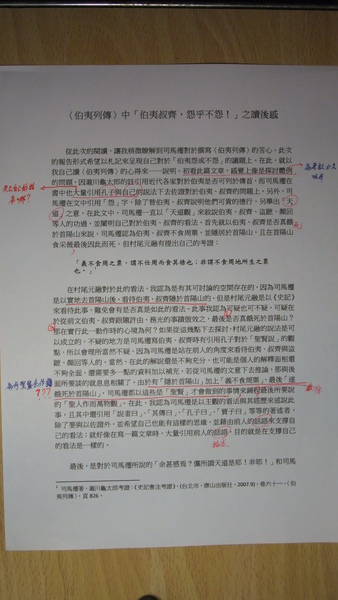 〈伯夷列傳〉中「伯夷叔齊，怨乎不怨！」之讀後感
從此次的閱讀，讓我稍微瞭解到司馬遷於撰寫〈伯夷列傳〉的苦心。此次
的報告形式希望以札記來呈現自己對於「伯夷怨或不怨」的議題上，在此，就以
我自己讀〈伯夷列傳〉的心得來一一說明，初看此篇文章，感覺上像是探討體例
的問題，因瀧川龜太郎的註引用近代各家對於伯夷是否可列於傳首，而司馬遷在
書中也大量引用孔子與自己的說法下去佐證對於伯夷、叔齊的問題上。另外，司
馬遷在文中引用「怨」字，除了替伯夷、叔齊說明他們可貴的德行，另學出「天
道」之意。在此文中，司馬遷一直以「天道觀」來敘說伯夷、叔齊、盜蹠、顏回
等人的功過，並闡明自己對於伯夷、叔齊的看法。首先就以伯夷、叔齊是否真餓
死於首陽山來說，司馬遷認為伯夷、叔齊不食周粟，並隱居於首陽山，且在首陽山
食采薇最後因此而死。但村尾元融有提出自己的考證：
「義不食周之粟，謂不仕周而食其祿也；非謂不食周地所生之粟
也。」
在村尾元融對於此的看法，我認為是有其可討論的空間存在的，因為司馬遷
是以實地去首陽山後，看待伯夷、叔齊隱於首陽山的。但是村尾元融是以《史記》
來看待此事，難免會有是否真是如此的看法。此事我認為可疑也可不疑，可疑在
於從前文伯夷、叔齊說國許由、務光的事績做效之，最後是否真餓死於首陽山？
那在實行此一動作時的心境為何？如果從這幾點下去探討，村尾元融的說法是可
以成立的。不疑的地方是司馬遷寫伯夷、叔齊時有引用孔子對於「聖賢說」的觀
點，所以會理所當然不疑，因為司馬遷是站在前人的角度來看待伯夷、叔齊與盜
蹠、顏回等人的。當然，在此的解說還是不夠充分，也可能是個人的解釋面相還
不夠全面，還需要多一點的資料加以補充。若從司馬遷的文意下去推論，那與後
面所要談的就息息相關了。由於有「隱於首陽山」加上「義不食周粟」，最後「遂
餓死於首陽山」，司馬遷都以這些是「聖賢」才會做到的事情來鋪程最後所要說
的「聖人作而萬物覩」。在此，我認為司馬遷是以主觀的看法與其經歷來述說此
事，且其中還引用「說者曰」、「其傳曰」、「孔子曰」、「賈子曰」等等的著述者，
除了要與以佐證外，並希望自己也能有這樣的思維，並藉由前人的話語來支撐自
己的看法；就好像在寫一篇文章時，大量引用前人的話語，目的就是在支撐自己
的看法是一樣的。
最後，是對於司馬遷所說的「余甚惑焉？儻所謂天道是耶！非耶！」和司馬
1 司馬遷著，瀧川龜太郎考證：《史記會注考證》，(台北市，唐山出版社，2007.9)，卷六十一，〈伯
夷列傳〉，頁 826。